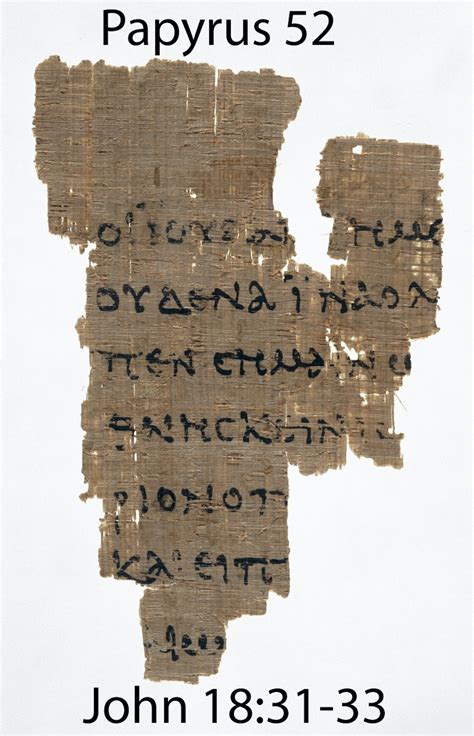 Papyrus 52
ΟΙΪΟΥΔΑΙ ΗΜΕ
ΟΥΔΕΝΑΪΝΑΟΛ
ΠΕΝϹΗΜΑΙΝΩ
ΘΝΗϹΚΕΙΝΙϹ
ΡΙΟΝΟΠ
ΚΑΙΕΙΠ
John 18:31-33